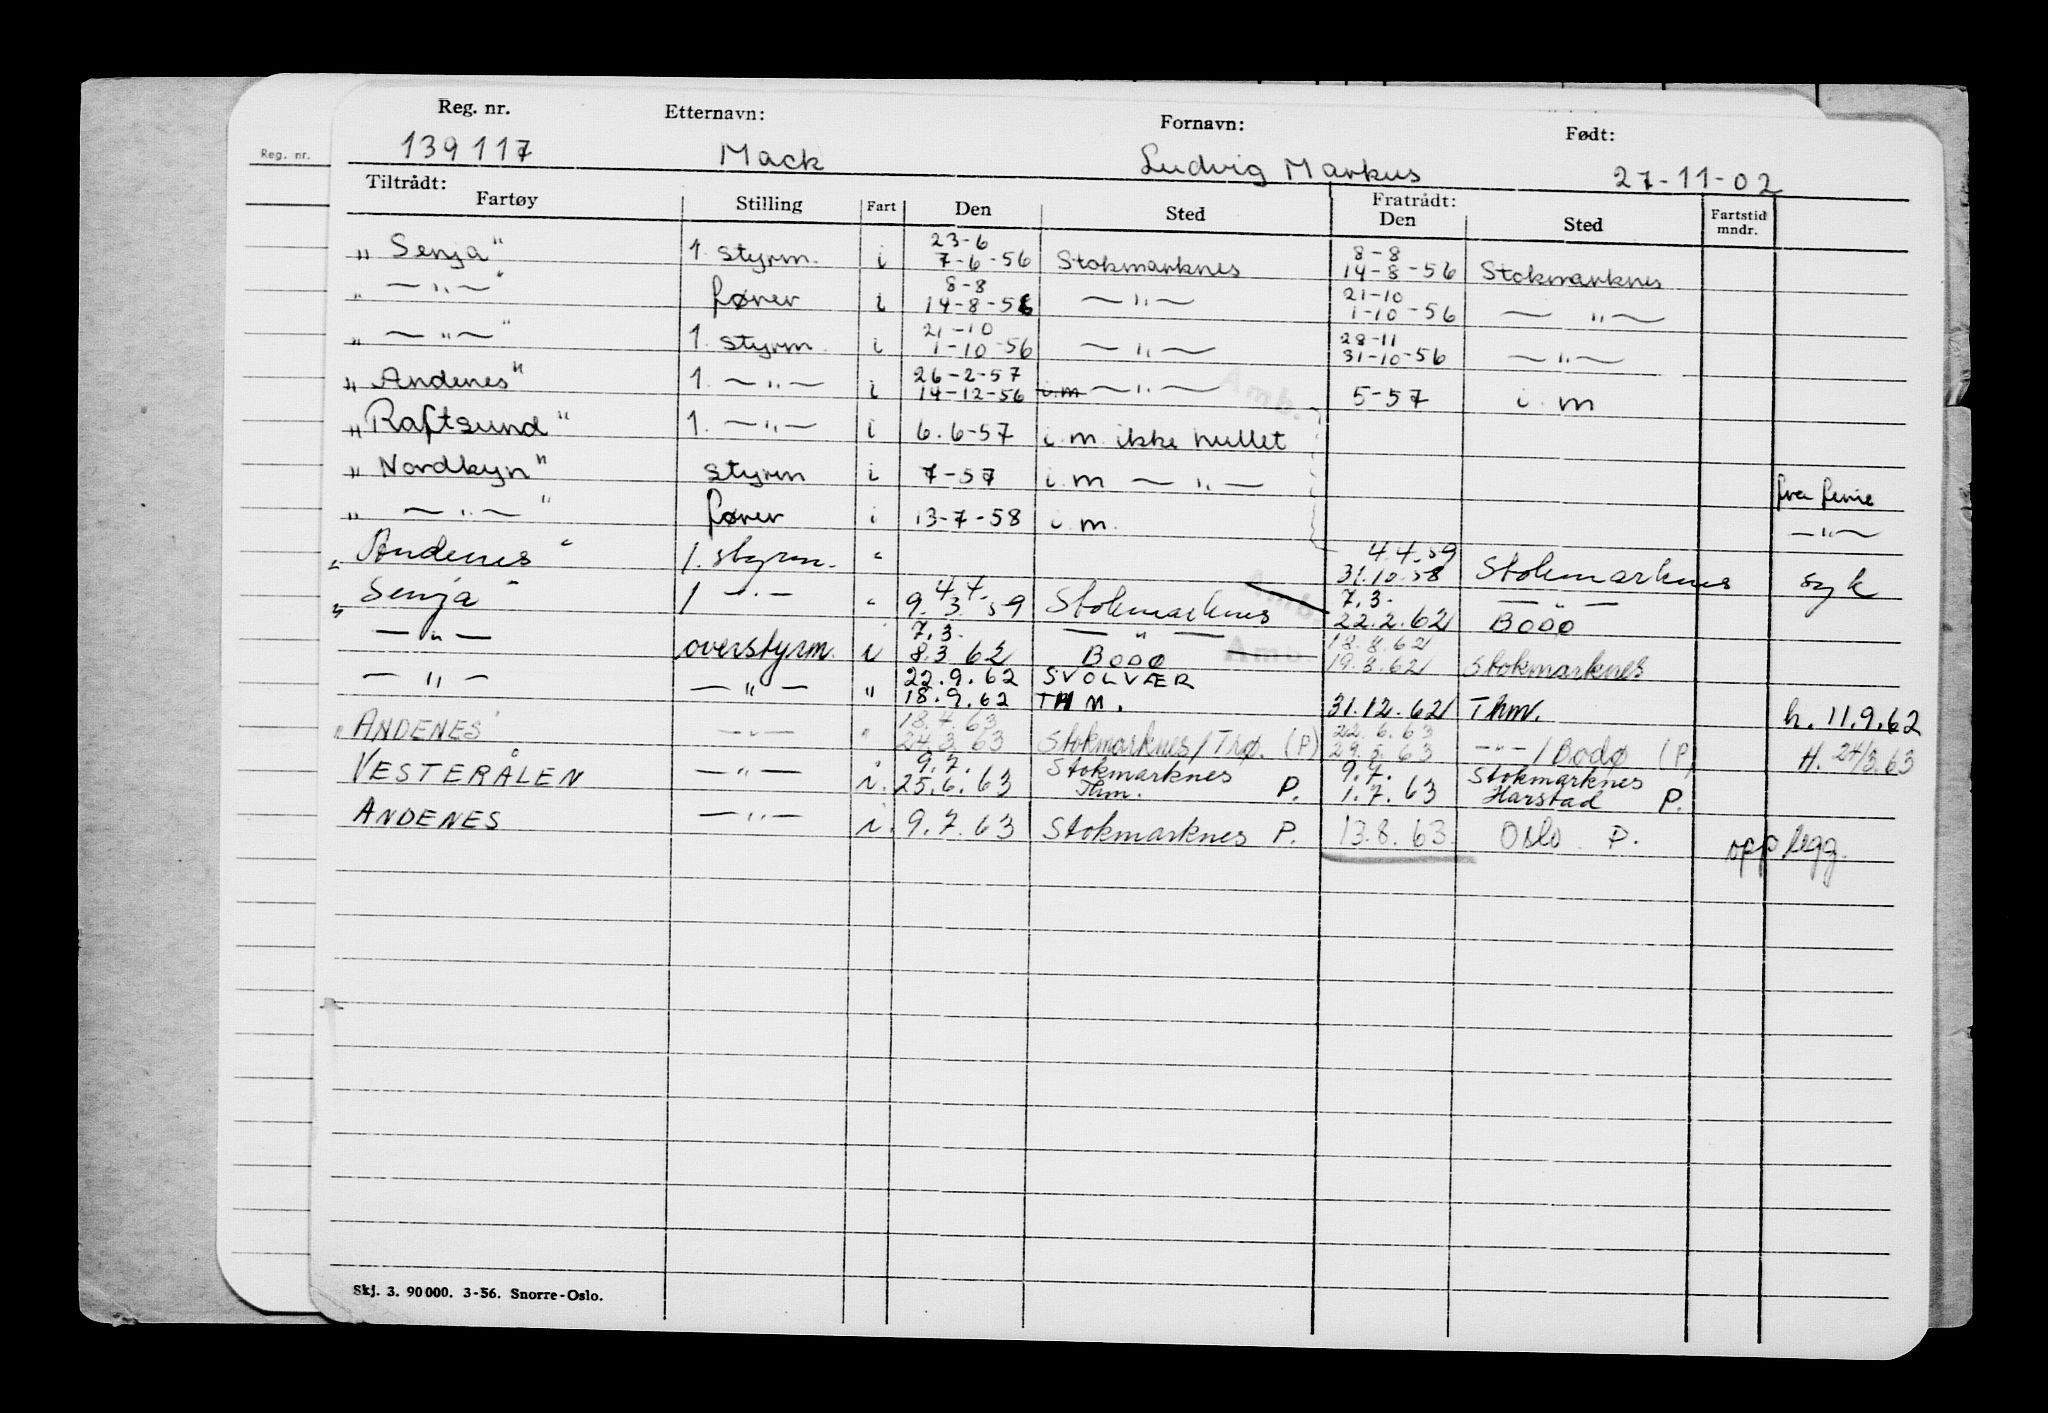 Reg. nr. Etternavn: Fornavn: Født:
139117 Mack Ludvig Markus 27-11-02
Reg. nr.
Tiltrådt: Fratrådt:
Fartøy Stilling Fart Den Sted Den Sted Fartstid mndr.
23-6 8-8
„ Senja" 1. styrm. i 7-6-56 Stokmarknes 14-8-56 Stokmarknes
8-8 21-10
„ — „ — " fører i 14-8-56 — „ — 1-10-56 — „ —
21-10 28-11
„ — „ — " 1. styrm. i 1-10-56 — „ — 31-10-56 — „ —
26-2-57
„ Andenes" 1. — „ — i 14-12-56 i.m — „ — Amb. 5-57 i. m
„ Raftsund" 1. — „ — i 6.6-57 i. m. ikke hullet
„ Nordkyn" styrm i 7-57 i. m — „ — fra ferie
„ — „ — " fører i 13-7-58 i. m. — „ —
4.4.59
„ Andenes" 1. styrm. " 31.10.58 Stokmarknes syk
4.4. 7.3.
„ Senja" 1 — " — " 9.3.59 Stokmarknes Amb. 22.2.62 Bodø
7.3. — " — 18.8.62
— „ — overstyrm. i 8.3.62 Bodø Amb. 19.8.62 Stokmarknes
22.9.62 SVOLVÆR
— „ — — „ — " 18.9.62 THM. 31.12.62 Thm. h. 11.9.62
18.4.63 22.6.63
„ ANDENES" — „ — " 24.3.63 Stokmarknes/Trø. (P) 29.5.63 — „ —/Bodø (P) H. 24/3.63
9.7. Stokmarknes 9.7. Stokmarknes
VESTERÅLEN — „ — i. 25.6.63 Thm. P. 1.7.63 Harstad P.
ANDENES — „ — i. 9.7.63 Stokmarknes P. 13.8.63 Oslo P. opplegg.
Skj. 3. 90 000. 3-56. Snorre-Oslo.